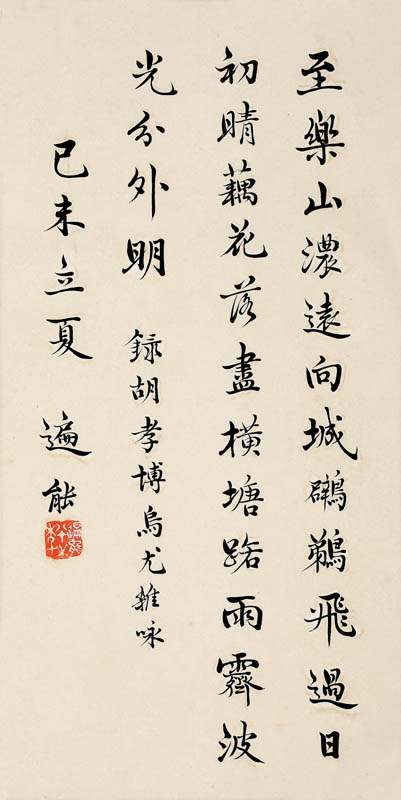 至樂山濃遠向城鸊鵜飛過日
初晴藕花落盡橫塘路雨霽波
光分外明
錄胡孝博烏尤雜咏
己未立夏
遍能